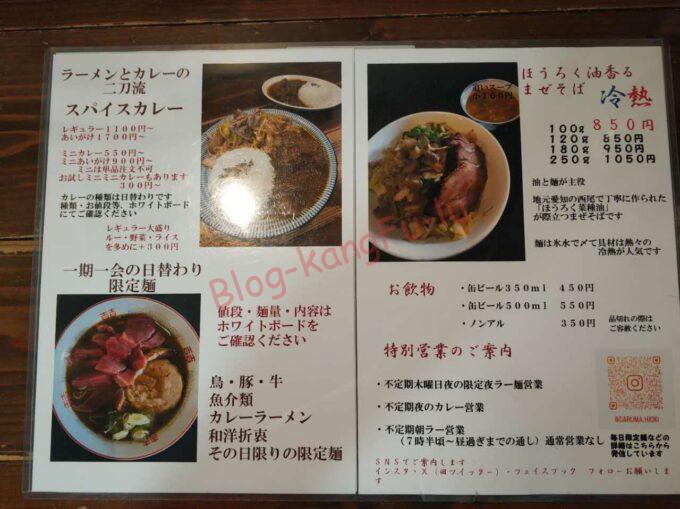 ラーメンとカレーの
二刀流
スパイスカレー
レギュラー1100円~
あいがけ1700円~
ミニカレー550円~
ミニあいがけ900円~
ミニは単品注文不可
お試しミニミニカレーもあります
300円~
カレーの種類は日替わりです
種類・お値段等、ホワイトボード
にてご確認ください
レギュラー大盛り
ルー・野菜・ライス
を多めに+300円
一期一会の日替わり
限定麺
値段・麺量・内容は
ホワイトボードを
ご確認ください
鳥・豚・牛
魚介類
カレーラーメン
和洋折衷
その日限りの限定麺
追いスープ
小100円
ほうろく油香る
まぜそば
冷熱
100g 850円
120g 850円
180g 950円
250g 1050円
油と麺が主役
地元愛知の西尾で丁寧に作られた
「ほうろく菜種油」
が際立つまぜそばです
麺は氷水で〆て具材は熱々の
冷熱が人気です
お飲物
・缶ビール350ml 450円
・缶ビール500ml 550円
・ノンアル 350円
品切れの際は
ご容赦ください
特別営業のご案内
・不定期木曜日夜の限定夜ラー麺営業
・不定期夜のカレー営業
・不定期朝ラー営業
(7時半頃~昼過ぎまでの通し)通常営業なし
@DARUMA.HIOKI
毎日限定麺などの
詳細はこちらから
発信しています
SNSでご案内します
インスタ・X(旧ツイッター)・フェイスブック フォローお願いしま
す
Blog-kangFu.jp